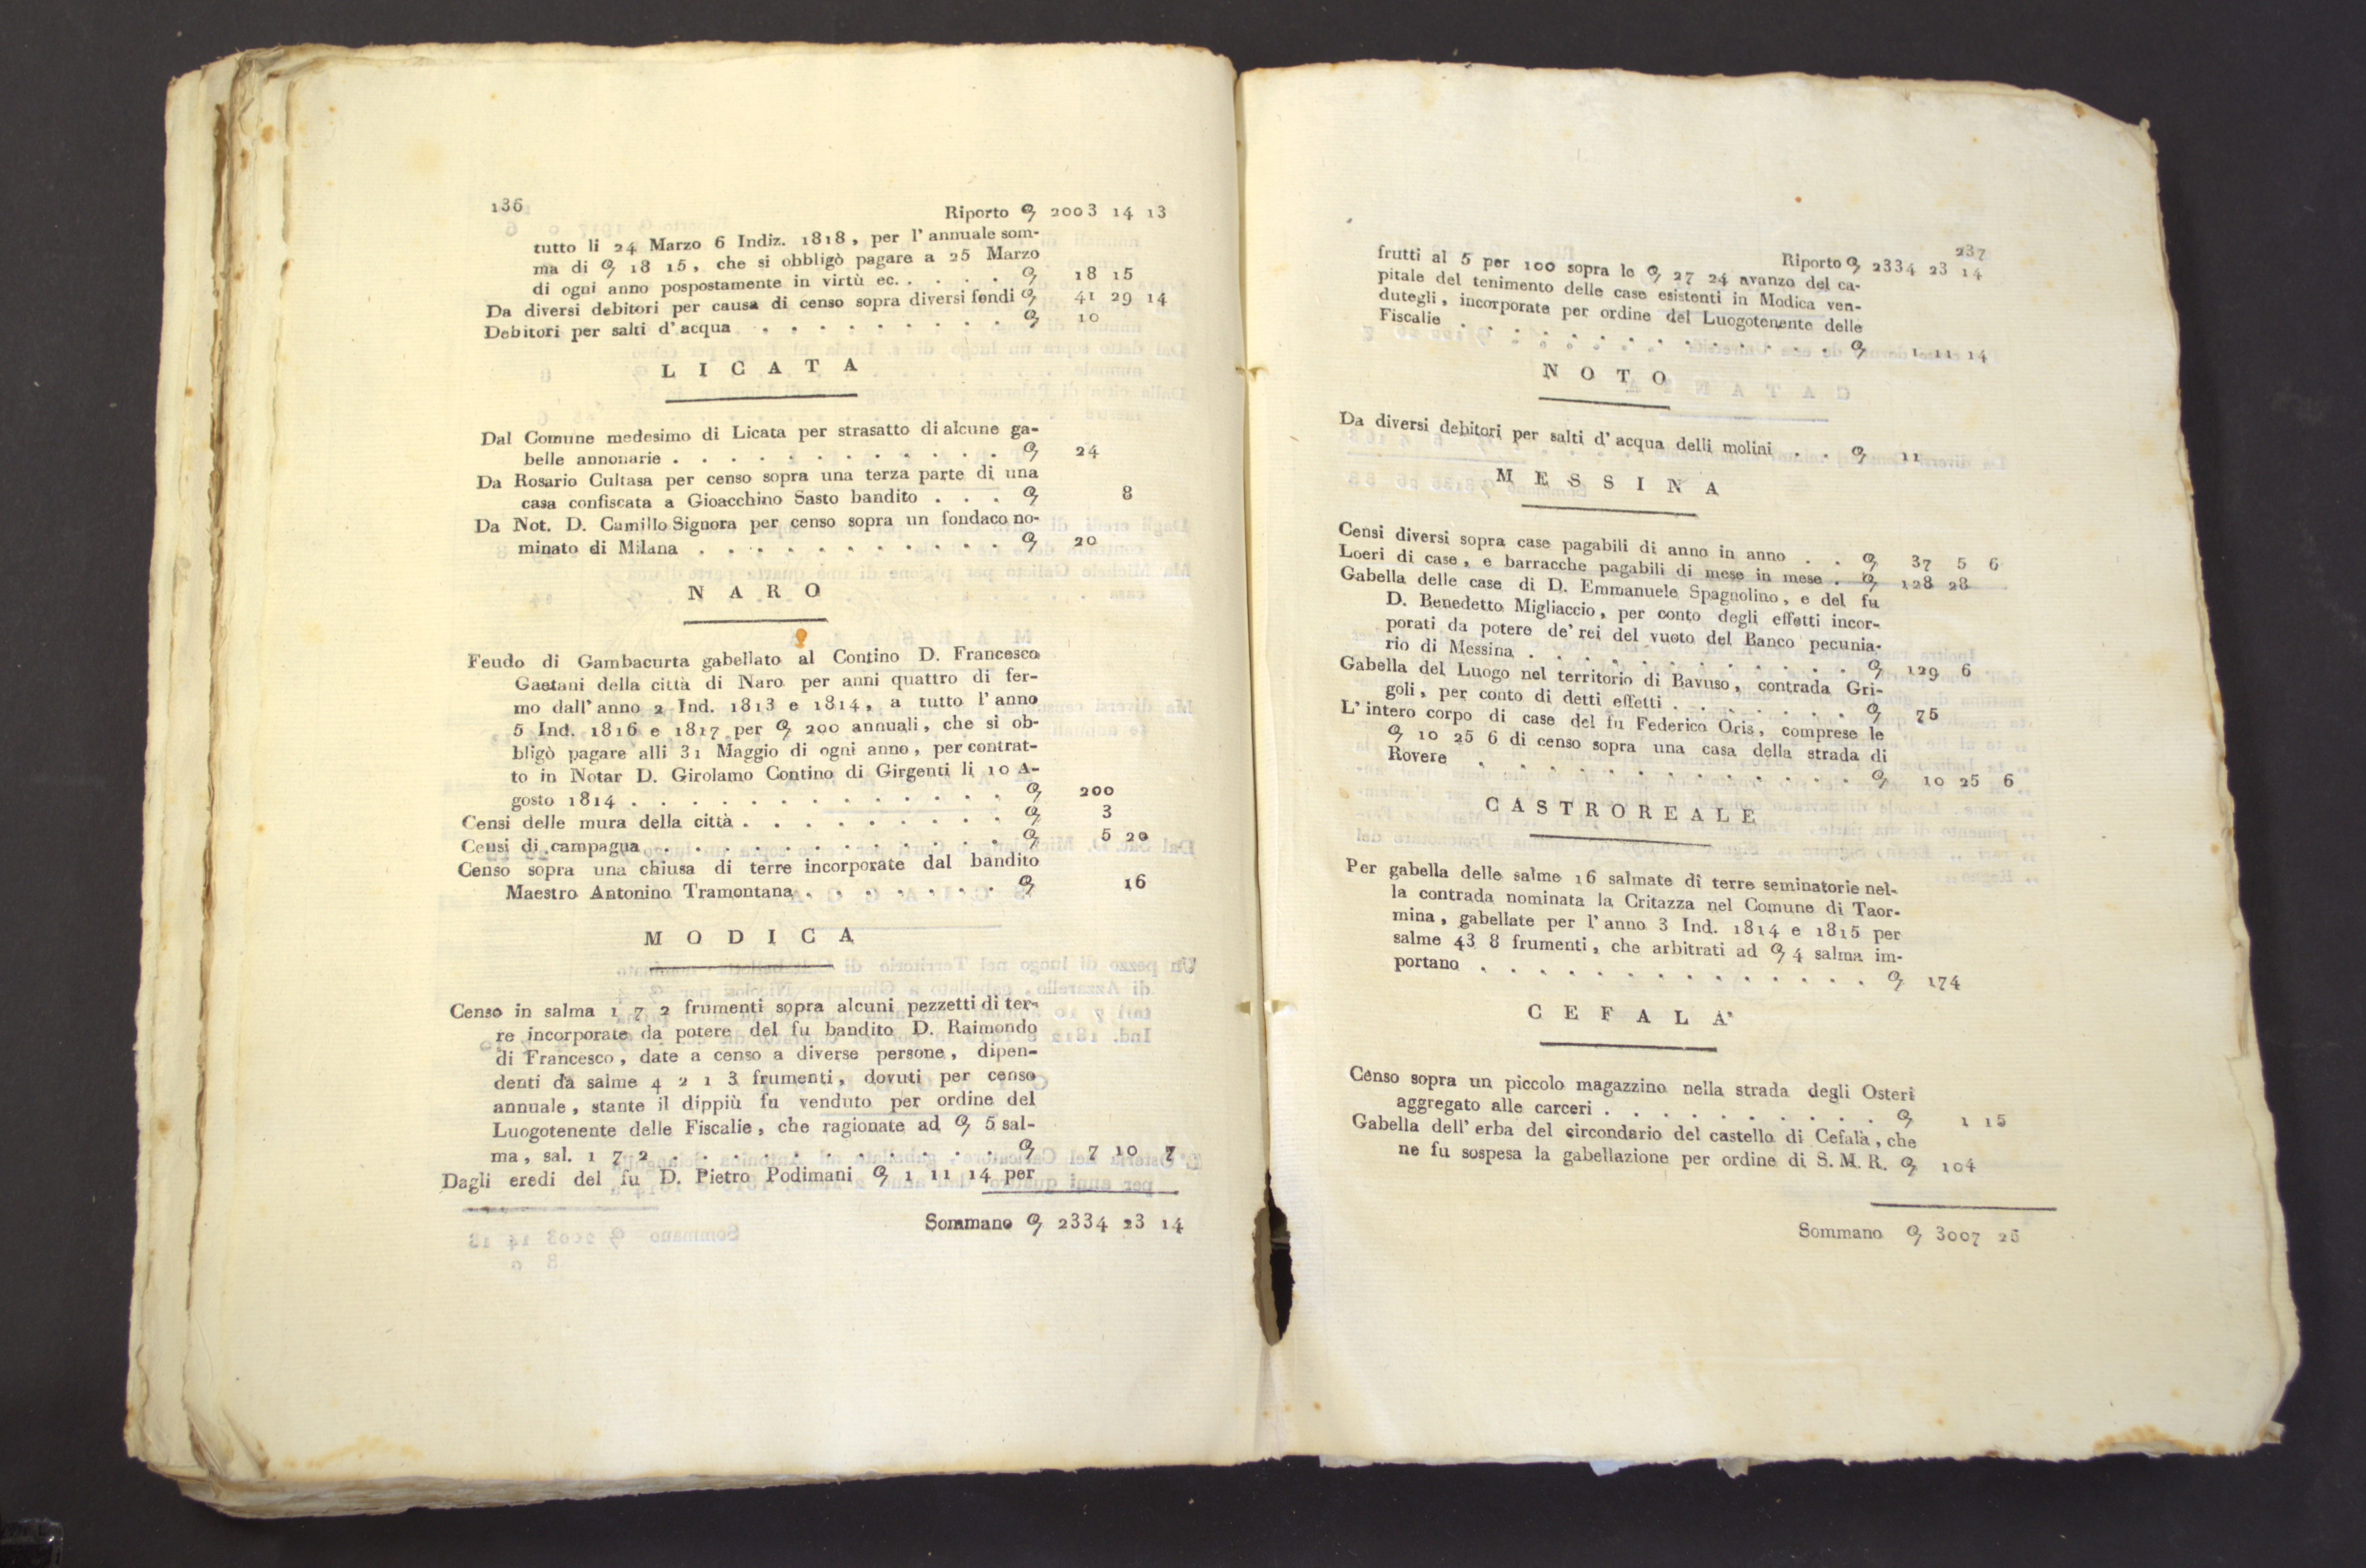 136
Riporto ꝯ 2003 14 13
tutto li 24 Marzo 6 Indiz. 1818, per l'annuale som-
ma di ꝯ 18 15, che si obbligò pagare a 25 Marzo
di ogni anno pospostamente in virtù ec. . . . . ꝯ 18 15
Da diversi debitori per causa di censo sopra diversi fondi ꝯ 41 29 14
Debitori per salti d'acqua . . . . . . . . . ꝯ 10
LICATA
Dal Comune medesimo di Licata per strasatto di alcune ga-
belle annonarie . . . . . . . . . . . . ꝯ 24
Da Rosario Cultasa per censo sopra una terza parte di una
casa confiscata a Gioacchino Sasto bandito . . . ꝯ 8
Da Not. D. Camillo Signora per censo sopra un fondaco no-
minato di Milana . . . . . . . . . . . ꝯ 20
NARO
Feudo di Gambacurta gabellato al Contino D. Francesco
Gaetani della città di Naro per anni quattro di fer-
mo dall'anno 2 Ind. 1813 e 1814, a tutto l'anno
5 Ind. 1816 e 1817 per ꝯ 200 annuali, che si ob-
bligò pagare alli 31 Maggio di ogni anno, per contrat-
to in Notar D. Girolamo Contino di Girgenti li 10 A-
gosto 1814 . . . . . . . . . . . . . ꝯ 200
Censi delle mura della città . . . . . . . . . ꝯ 3
Censi di campagna . . . . . . . . . . . . ꝯ 5 20
Censo sopra una chiusa di terre incorporate dal bandito
Maestro Antonino Tramontana . . . . . . . ꝯ 16
MODICA
Censo in salma 1 7 2 frumenti sopra alcuni pezzetti di ter-
re incorporate da potere del fu bandito D. Raimondo
di Francesco, date a censo a diverse persone, dipen-
denti da salme 4 2 1 3 frumenti, dovuti per censo
annuale, stante il dippiù fu venduto per ordine del
Luogotenente delle Fiscalie, che ragionate ad ꝯ 5 sal-
ma, sal. 1 7 2 . . . . . . . . . . . . ꝯ 7 10 7
Dagli eredi del fu D. Pietro Podimani ꝯ 1 11 14 per
Sommano ꝯ 2334 23 14
237
Riporto ꝯ 2334 23 14
frutti al 5 per 100 sopra le ꝯ 27 24 avanzo del ca-
pitale del tenimento delle case esistenti in Modica ven-
dutegli, incorporate per ordine del Luogotenente delle
Fiscalie . . . . . . . . . . . . . . ꝯ 1 11 14
NOTO
Da diversi debitori per salti d'acqua delli molini . . ꝯ 11
MESSINA
Censi diversi sopra case pagabili di anno in anno . . ꝯ 37 5 6
Loeri di case, e barracche pagabili di mese in mese . ꝯ 128 28
Gabella delle case di D. Emmanuele Spagnolino, e del fu
D. Benedetto Migliaccio, per conto degli effetti incor-
porati da potere de' rei del vuoto del Banco pecunia-
rio di Messina . . . . . . . . . . . . ꝯ 129 6
Gabella del Luogo nel territorio di Bavuso, contrada Gri-
goli, per conto di detti effetti . . . . . . . ꝯ 75
L'intero corpo di case del fu Federico Oris, comprese le
ꝯ 10 25 6 di censo sopra una casa della strada di
Rovere . . . . . . . . . . . . . ꝯ 10 25 6
CASTROREALE
Per gabella delle salme 16 salmate di terre seminatorie nel-
la contrada nominata la Critazza nel Comune di Taor-
mina, gabellate per l'anno 3 Ind. 1814 e 1815 per
salme 43 8 frumenti, che arbitrati ad ꝯ 4 salma im-
portano . . . . . . . . . . . . . . ꝯ 174
CEFALA'
Censo sopra un piccolo magazzino nella strada degli Osteri
aggregato alle carceri . . . . . . . . . . ꝯ 1 15
Gabella dell'erba del circondario del castello di Cefalà, che
ne fu sospesa la gabellazione per ordine di S. M. R. ꝯ 104
Sommano ꝯ 3007 26